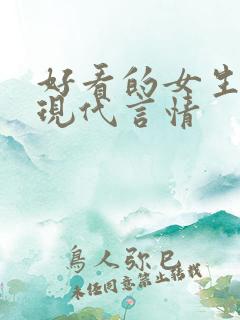 好看的女生
現代言情
鳥人弥巳
未经同意禁止转载